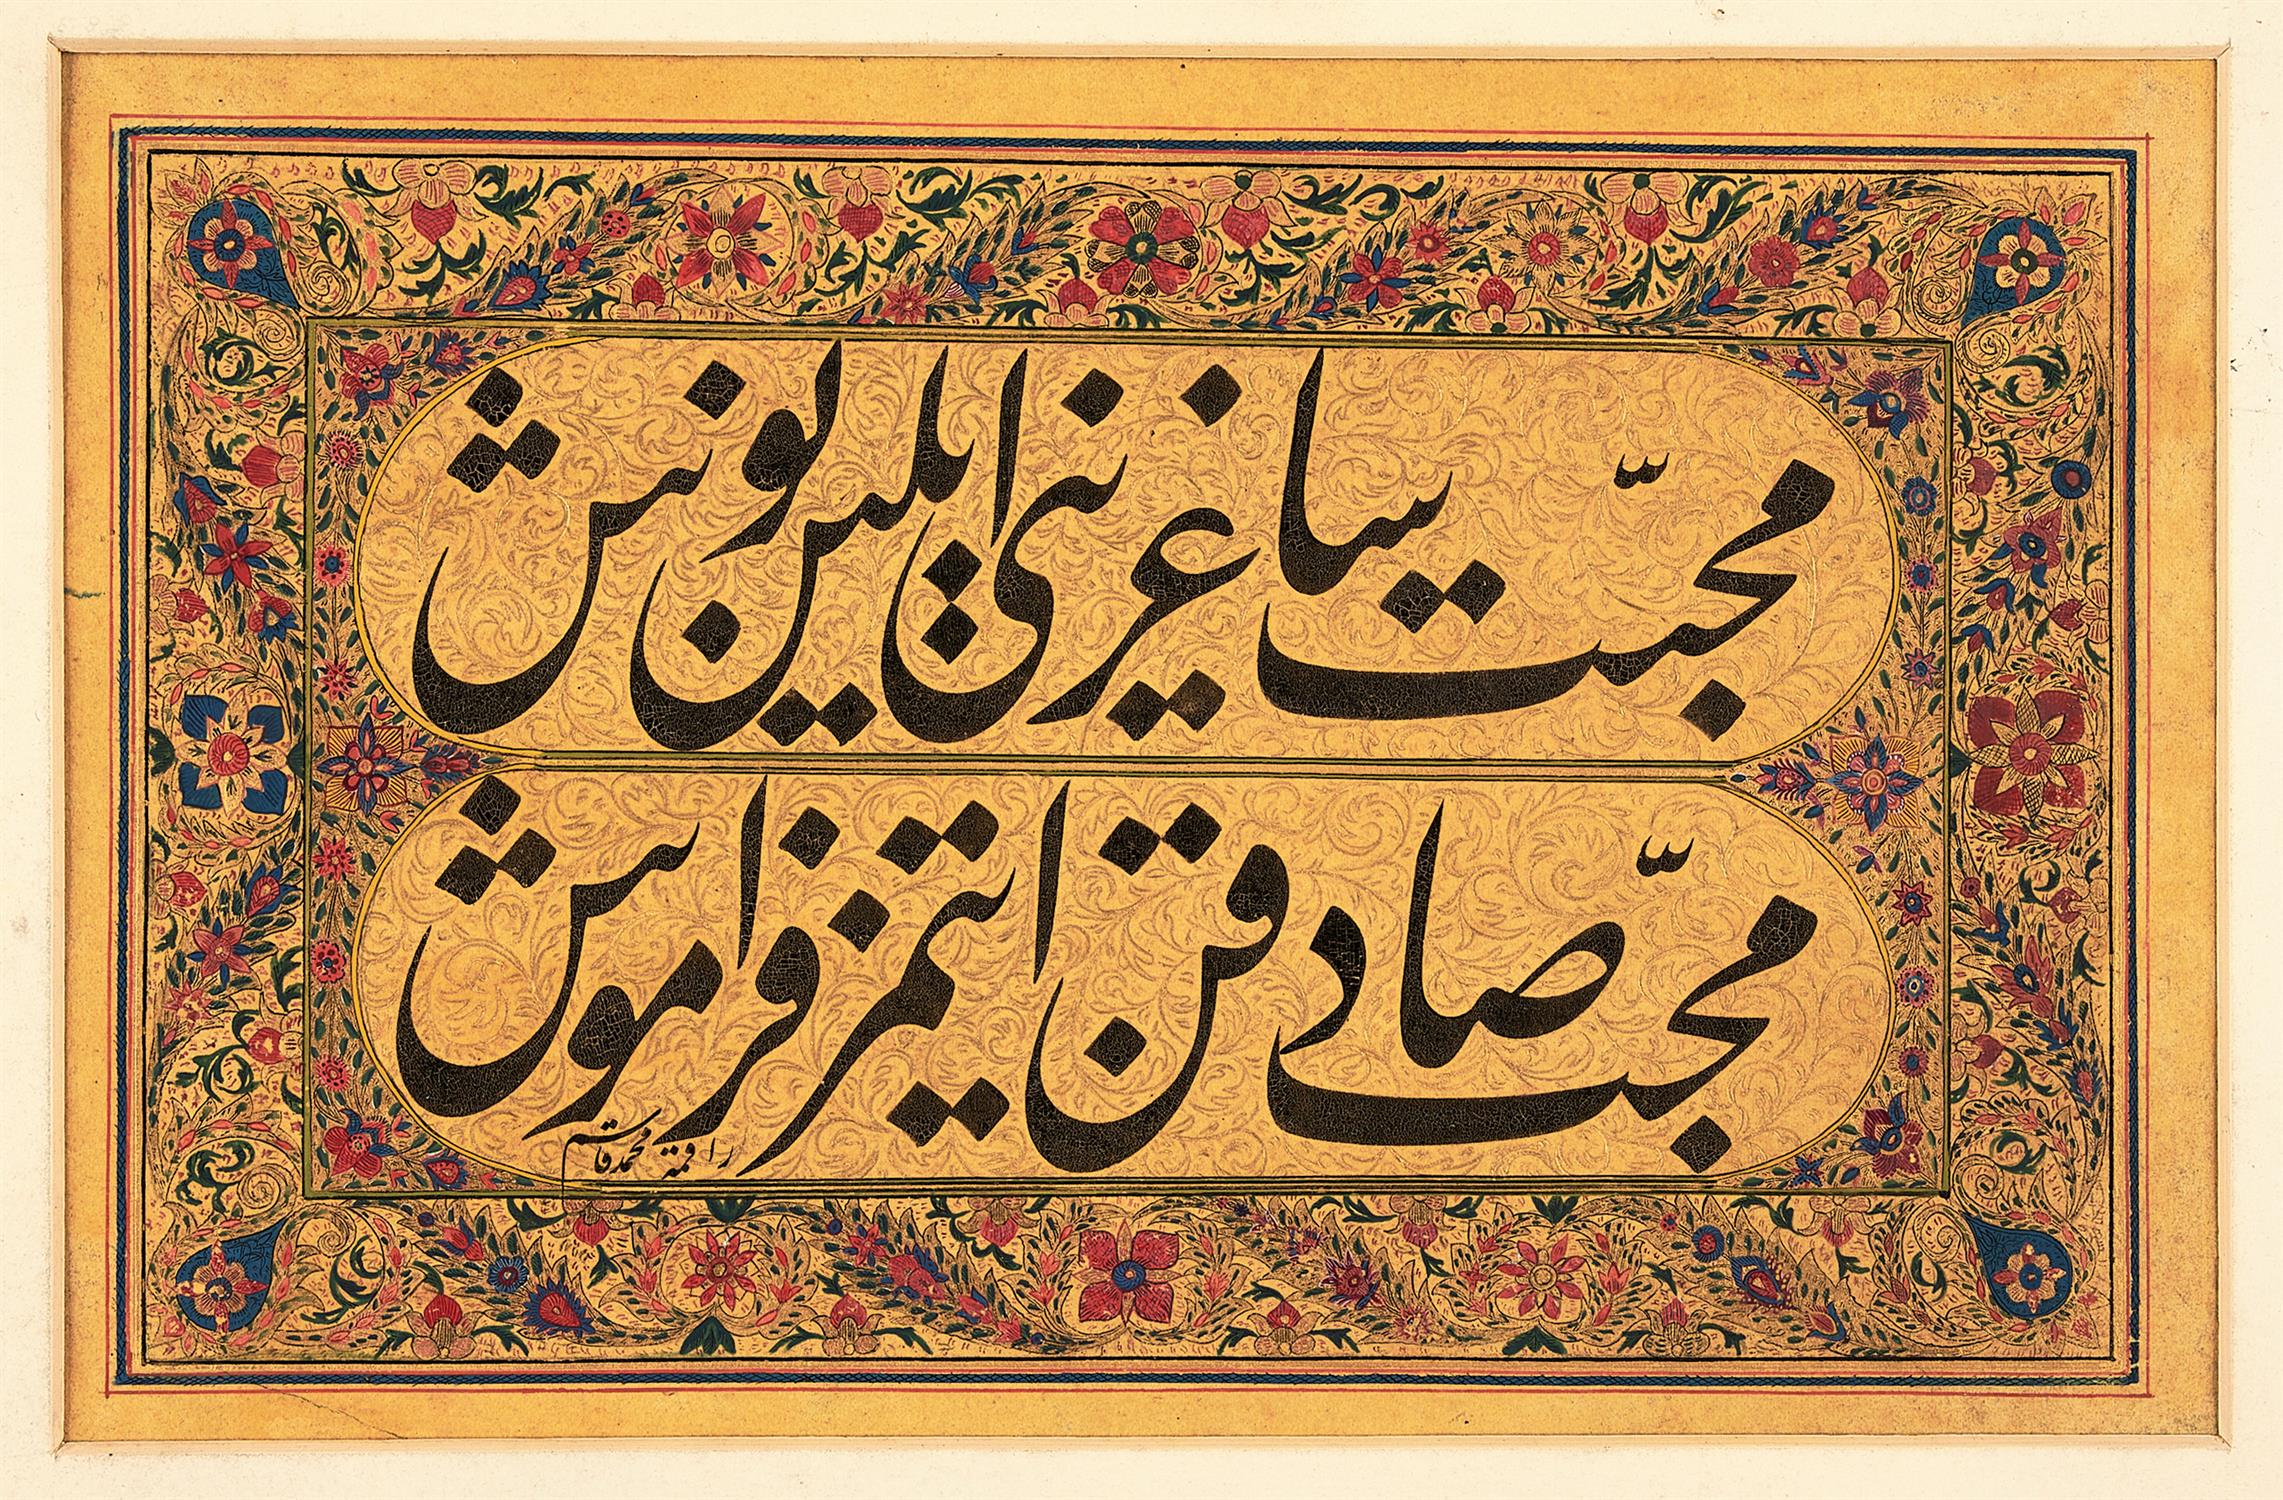 محبّت ساغرنی ایلین نوش
محبّت صادقن ایتمز فراموش
راقمه محمد قاسم